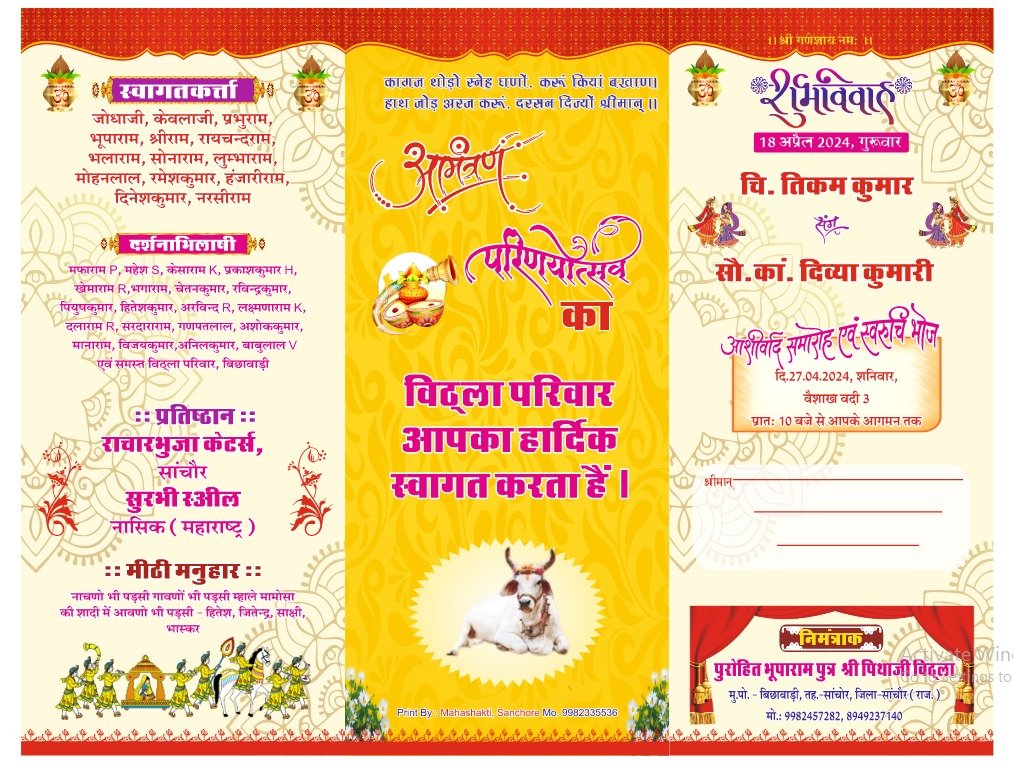 स्वागतकर्त्ता
जोधाजी, केवलाजी, प्रभुराम,
भूपाराम, श्रीराम, रायचन्दराम,
भलाराम, सोनाराम, लुम्भाराम,
मोहनलाल, रमेशकुमार, हंजारीराम,
दिनेशकुमार, नरसीराम
दर्शनाभिलाषी
मफाराम P, महेश S, केसाराम K, प्रकाशकुमार H,
खेमाराम R,भगाराम, चेतनकुमार, रविन्द्रकुमार,
पियुषकुमार, हितेशकुमार, अरविन्द R, लक्ष्मणाराम K,
दलाराम R, सरदाराराम, गणपतलाल, अशोककुमार,
मानाराम, विजयकुमार,अनिलकुमार, बाबुलाल V
एवं समस्त विठ्ला परिवार, बिछावाड़ी
:: प्रतिष्ठान ::
राचारभुजा केटर्स,
सांचौर
सुरभी स्अील
नासिक ( महाराष्ट्र )
:: मीठी मनुहार ::
नाचणो भी पड़सी गावणों भी पड़सी म्हाले मामोसा
की शादी में आवणो भी पड़सी - हितेश, जितेन्द्र, साक्षी,
भास्कर
कागज थोड़ो स्नेह घणों, करूं कियां बखाण।
हाथ जोड़ अरज करूं, दरसन दिज्यों श्रीमान्।।
आमंत्रण
परिणयोत्सव
का
विठ्ला परिवार
आपका हार्दिक
स्वागत करता हैं।
Print By : Mahashakti, Sanchore Mo. 9982335536
।। श्री गणेशाय नमः ।।
शुभविवाह
18 अप्रैल 2024, गुरूवार
चि. तिकम कुमार
संग
सौ.कां. दिव्या कुमारी
आशीर्वाद समारोह एवं स्वरुचि भोज
दि.27.04.2024, शनिवार,
वैशाख वदी 3
प्रात: 10 बजे से आपके आगमन तक
श्रीमान्
निमंत्राक
पुरोहित भूपाराम पुत्र श्री पिथाजी विठ्ला
मु.पो. - बिछावाड़ी, तह.-सांचोर, जिला-सांचोर ( राज. )
मो.: 9982457282, 8949237140
Activate Win